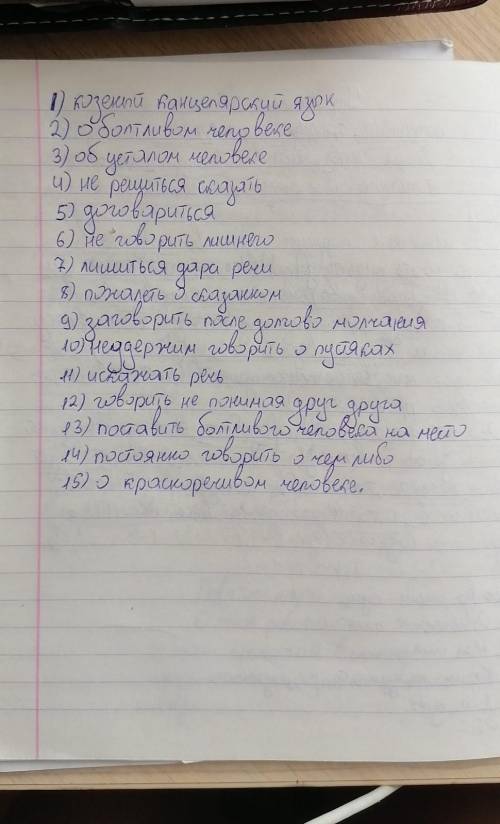 1) козеный канцелярский язык
2) о болтливом человеке
3) об усталом человеке
4) не решиться сказать
5) договариться
6) не говорить лишнего
7) лишиться дара речи
8) пожалеть о сказанном
9) заговорить после долгово молчания
10) неудержим говорить о пустяках
11) искажать речь
12) говорить не понимая друг друга
13) поставить болтливого человека на место
14) постоянно говорить о чем либо
15) о краскоречивом человеке.